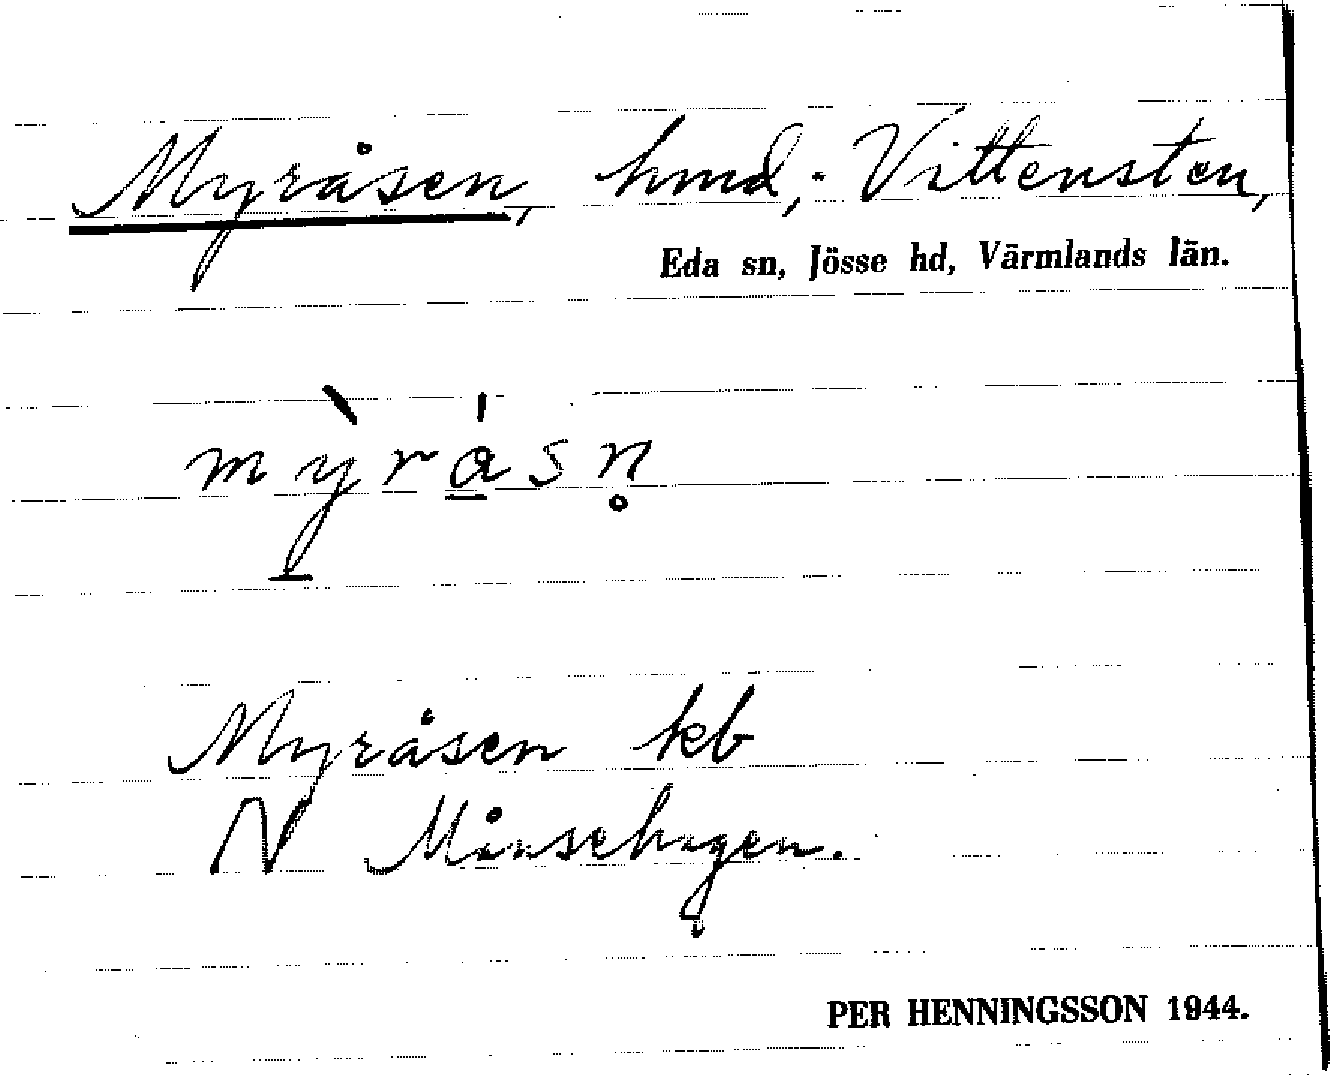 Myråsen, hmd; Vittensten,
Eda sn, Jösse hd, Värmlands län.
mỳrá̱sn̥
Myråsen kb
N Månsehagen.
PER HENNINGSSON 1944.